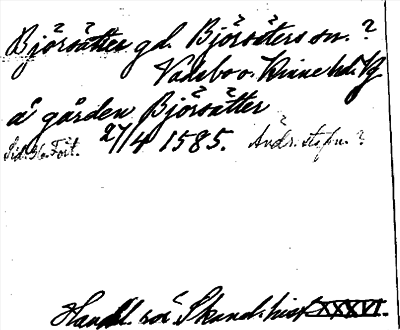 Björsätter gd. Björsäters sn. ?
Valsbo o. Kinne hd. Vg
å gården Björsätter
27/4 1585. Ändr. stafn. ?
Handl. rör. Skand. hist XXXVI.